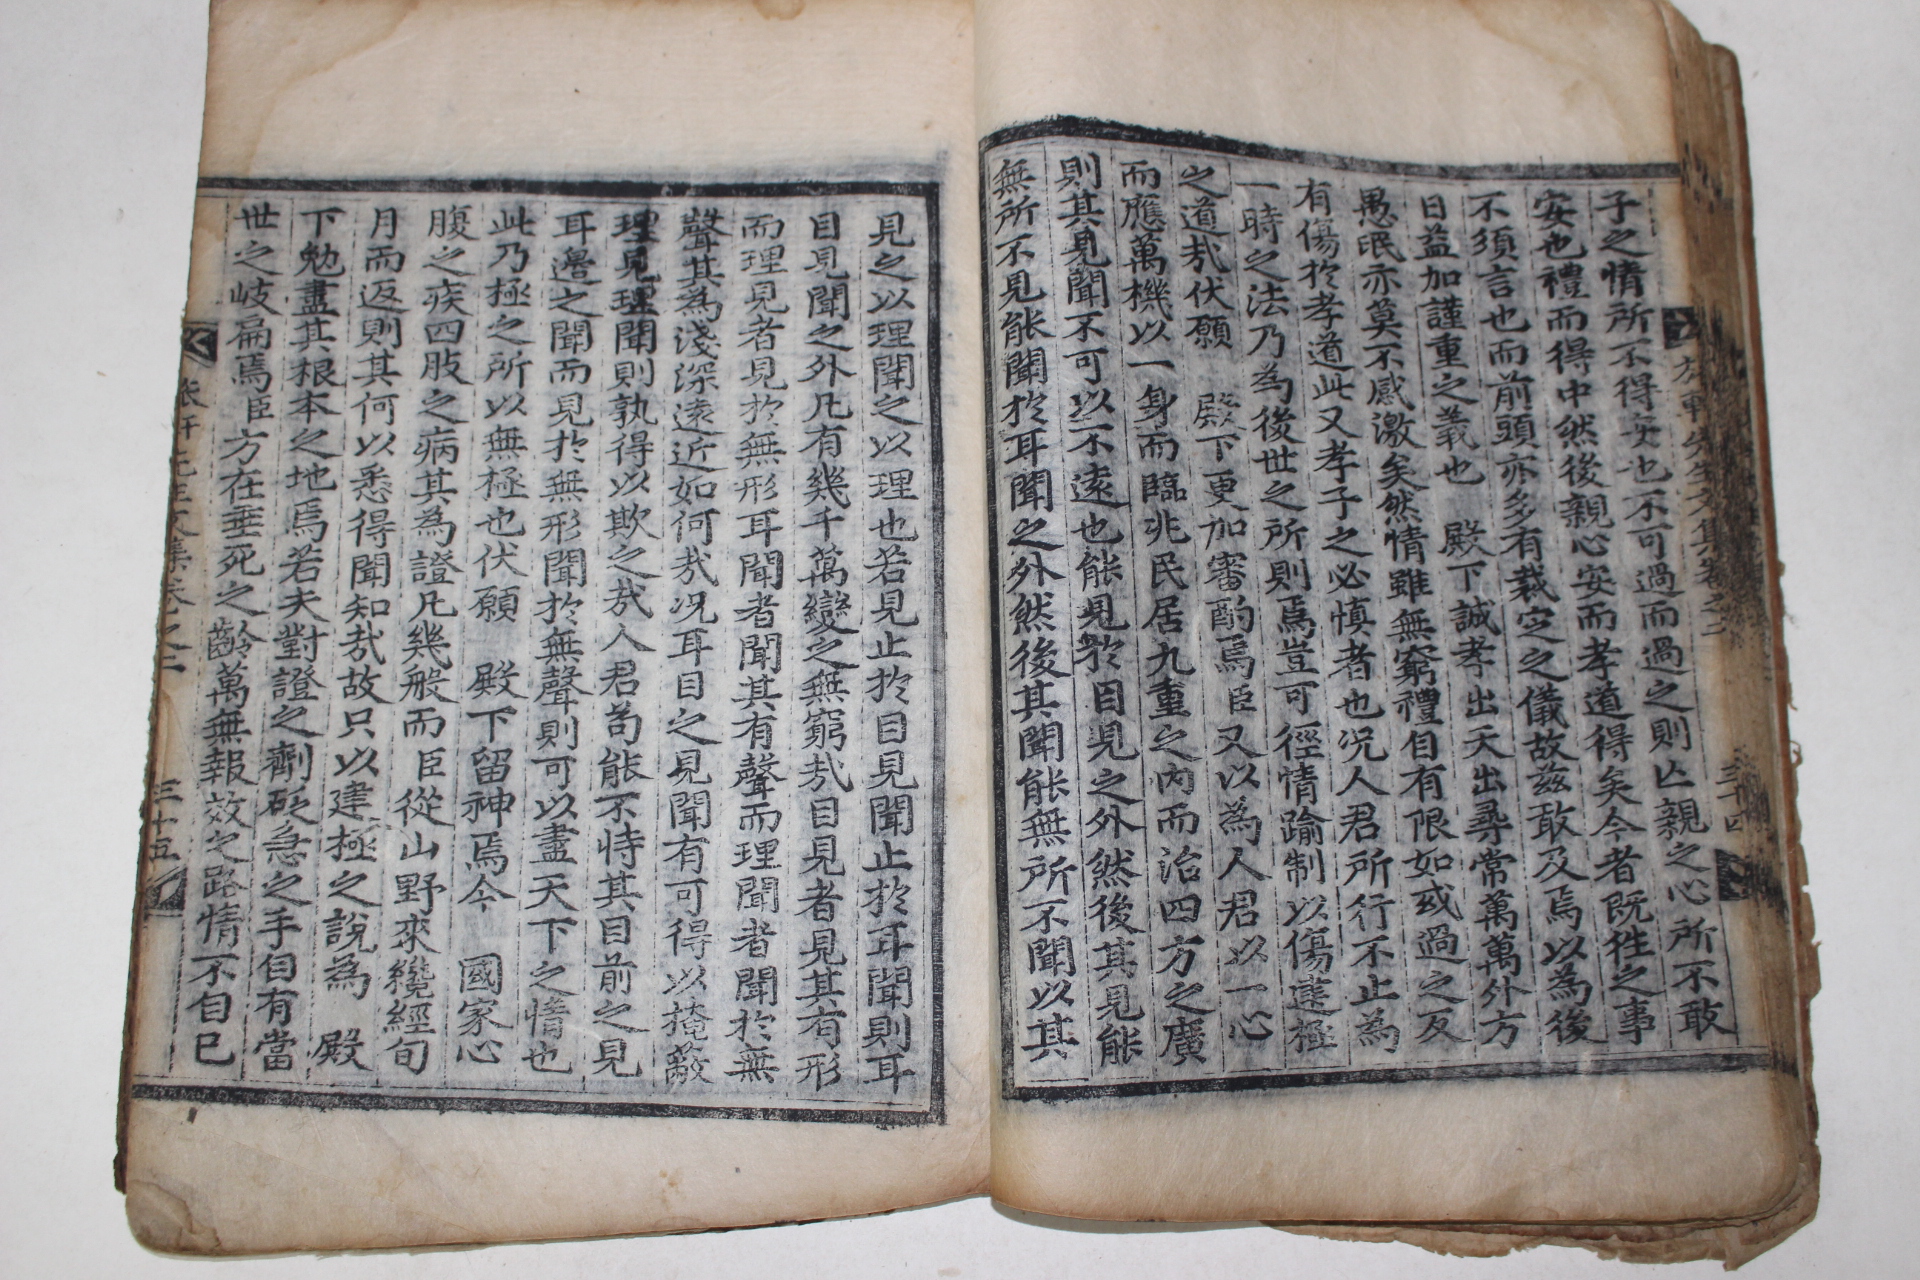 子之情所不得安也不可過而過之則亡親之心所不敢
安也禮而得中然後親心安而孝道得矣今者既往之事
不須言也而前頭亦多有裁定之儀故玆敢及焉以為後
日益加謹重之義也 殿下誠孝出天出尋常萬萬外方
愚氓亦莫不感激矣然情雖無窮禮自有限如或過之反
有傷於孝道此又孝子之必慎者也况人君所行不止為
一時之法乃為後世之所則焉豈可徑情踰制以傷建極
之道㦲伏願 殿下更加審酌焉臣又以為人君以一心
而應萬機以一身而臨兆民居九重之內而治四方之廣
則其見聞不可以不遠也能見於目見之外然後其見能
無所不見能聞於耳聞之外然後其聞能無所不聞以其
見之以理聞之以理也若見止於目見聞止於耳聞則耳
目見聞之外凡有幾千萬變之無窮㦲目見者見其有形
而理見者見於無形耳聞者聞其有聲而理聞者聞於無
聲其為淺深遠近如何㦲况耳目之見聞有可得以掩蔽
理見理聞則孰得以欺之㦲人君苟能不恃其目前之見
耳邊之聞而見於無形聞於無聲則可以盡天下之情也
此乃極之所以無極也伏願 殿下留神焉今 國家心
腹之疾四肢之病其為證凡幾般而臣從山野來纔經旬
月而返則其何以悉得聞知㦲故只以建極之說為 殿
下勉盡其根本之地焉若夫對證之劑砭急之手自有當
世之岐扁焉臣方在垂死之齡萬無報效之路情不自已
三十五